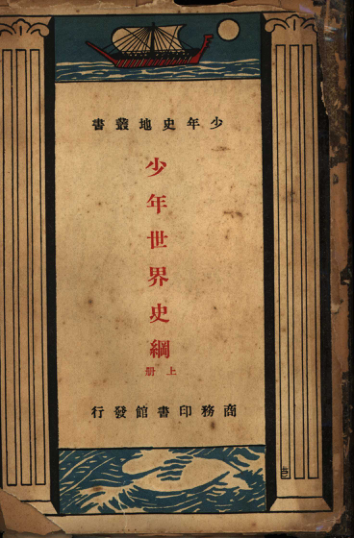 少年史地叢書
少年世界史綱
上册
商務印書館發行